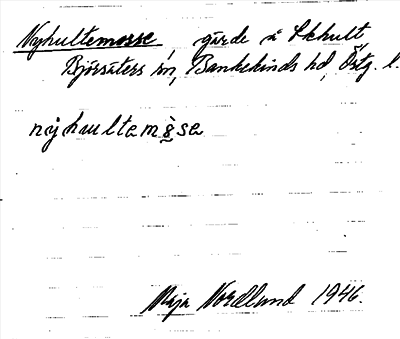 Nyhultemosse, gärde å Ekhult,
Björsäters sn, Bankekinds hd, Östg. l.
nyhultemåse
Maja Nordlund 1946.